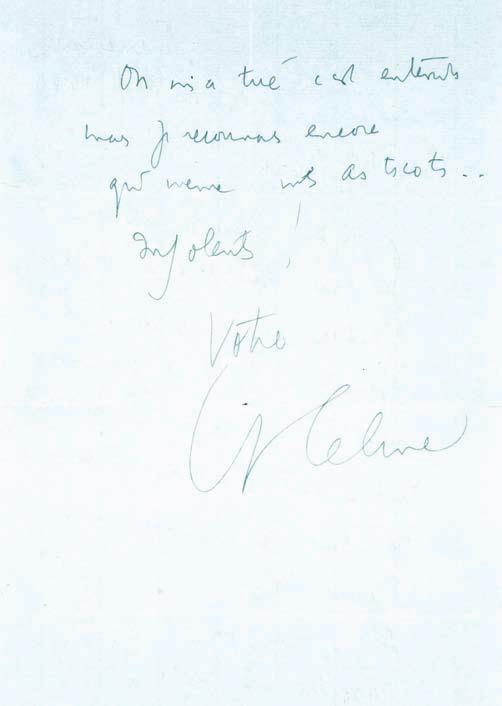 On m'a tué c'est entendu
mais je reconnais encore
qd meme mes asticots..
Insolents !
Votre
LF Celine